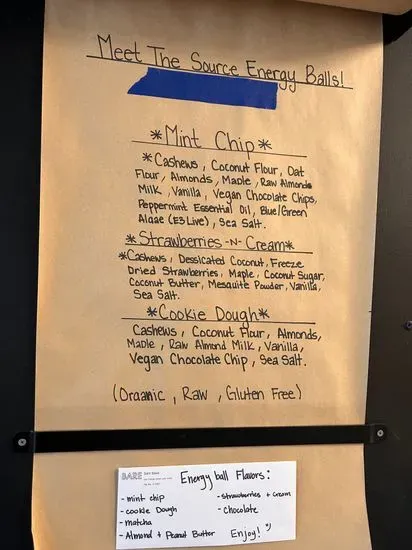 Meet The Source Energy Balls!
*Mint Chip*
*Cashews, Coconut Flour, Oat
Flour, Almonds, Maple, Raw Almond
Milk, Vanilla, Vegan Chocolate Chips,
Peppermint Essential Oil, Blue/Green
Algae (E3Live), Sea Salt.
*Strawberries -N- Cream*
*Cashews, Dessicated Coconut, Freeze
Dried Strawberries, Maple, Coconut Sugar,
Coconut Butter, Mesquite Powder, Vanilla,
Sea Salt.
*Cookie Dough*
Cashews, Coconut Flour, Almonds,
Maple, Raw Almond Milk, Vanilla,
Vegan Chocolate Chip, Sea Salt.
(Organic, Raw, Gluten Free)
BARE
Energy ball Flavors:
- mint chip
- cookie Dough
- matcha
- Almond + Peanut Butter
- Strawberries + Cream
- chocolate
Enjoy! :)